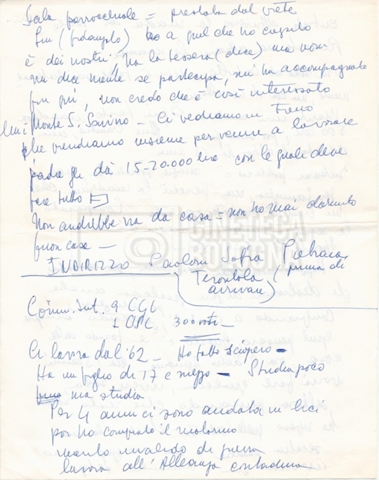 Sala parrocchiale = prestata dal prete
Lui (fidanzato) a quel che ho capito
è dei nostri, ha la tessera (dice) ma non
mi dice niente se partecipa, mi ha accompagnato
fin qui, non credo che è così interessato
Monte S. Savino - Ci vediamo in Treno
che prendiamo insieme per venire a lavorare
padre gli dà 15-20.000 lire con le quali deve
fare tutto
Non andrebbe via da casa = non ho mai dormito
fuori casa -
INDIRIZZO Paoloni Sofia Pietraia
Terontola (prima di
arrivare)
Comm. Int. 9 CGL
300 voti -
Ci lavora dal '62 - Ho fatto sciopero -
Ha un figlio di 17 e mezzo - Studia poco
ma studia
Per 4 anni ci sono andata in bici
poi ho comprato il motorino
marito invalido di guerra
lavora all'Alleanza contadina
CINETECA
BOLOGNA